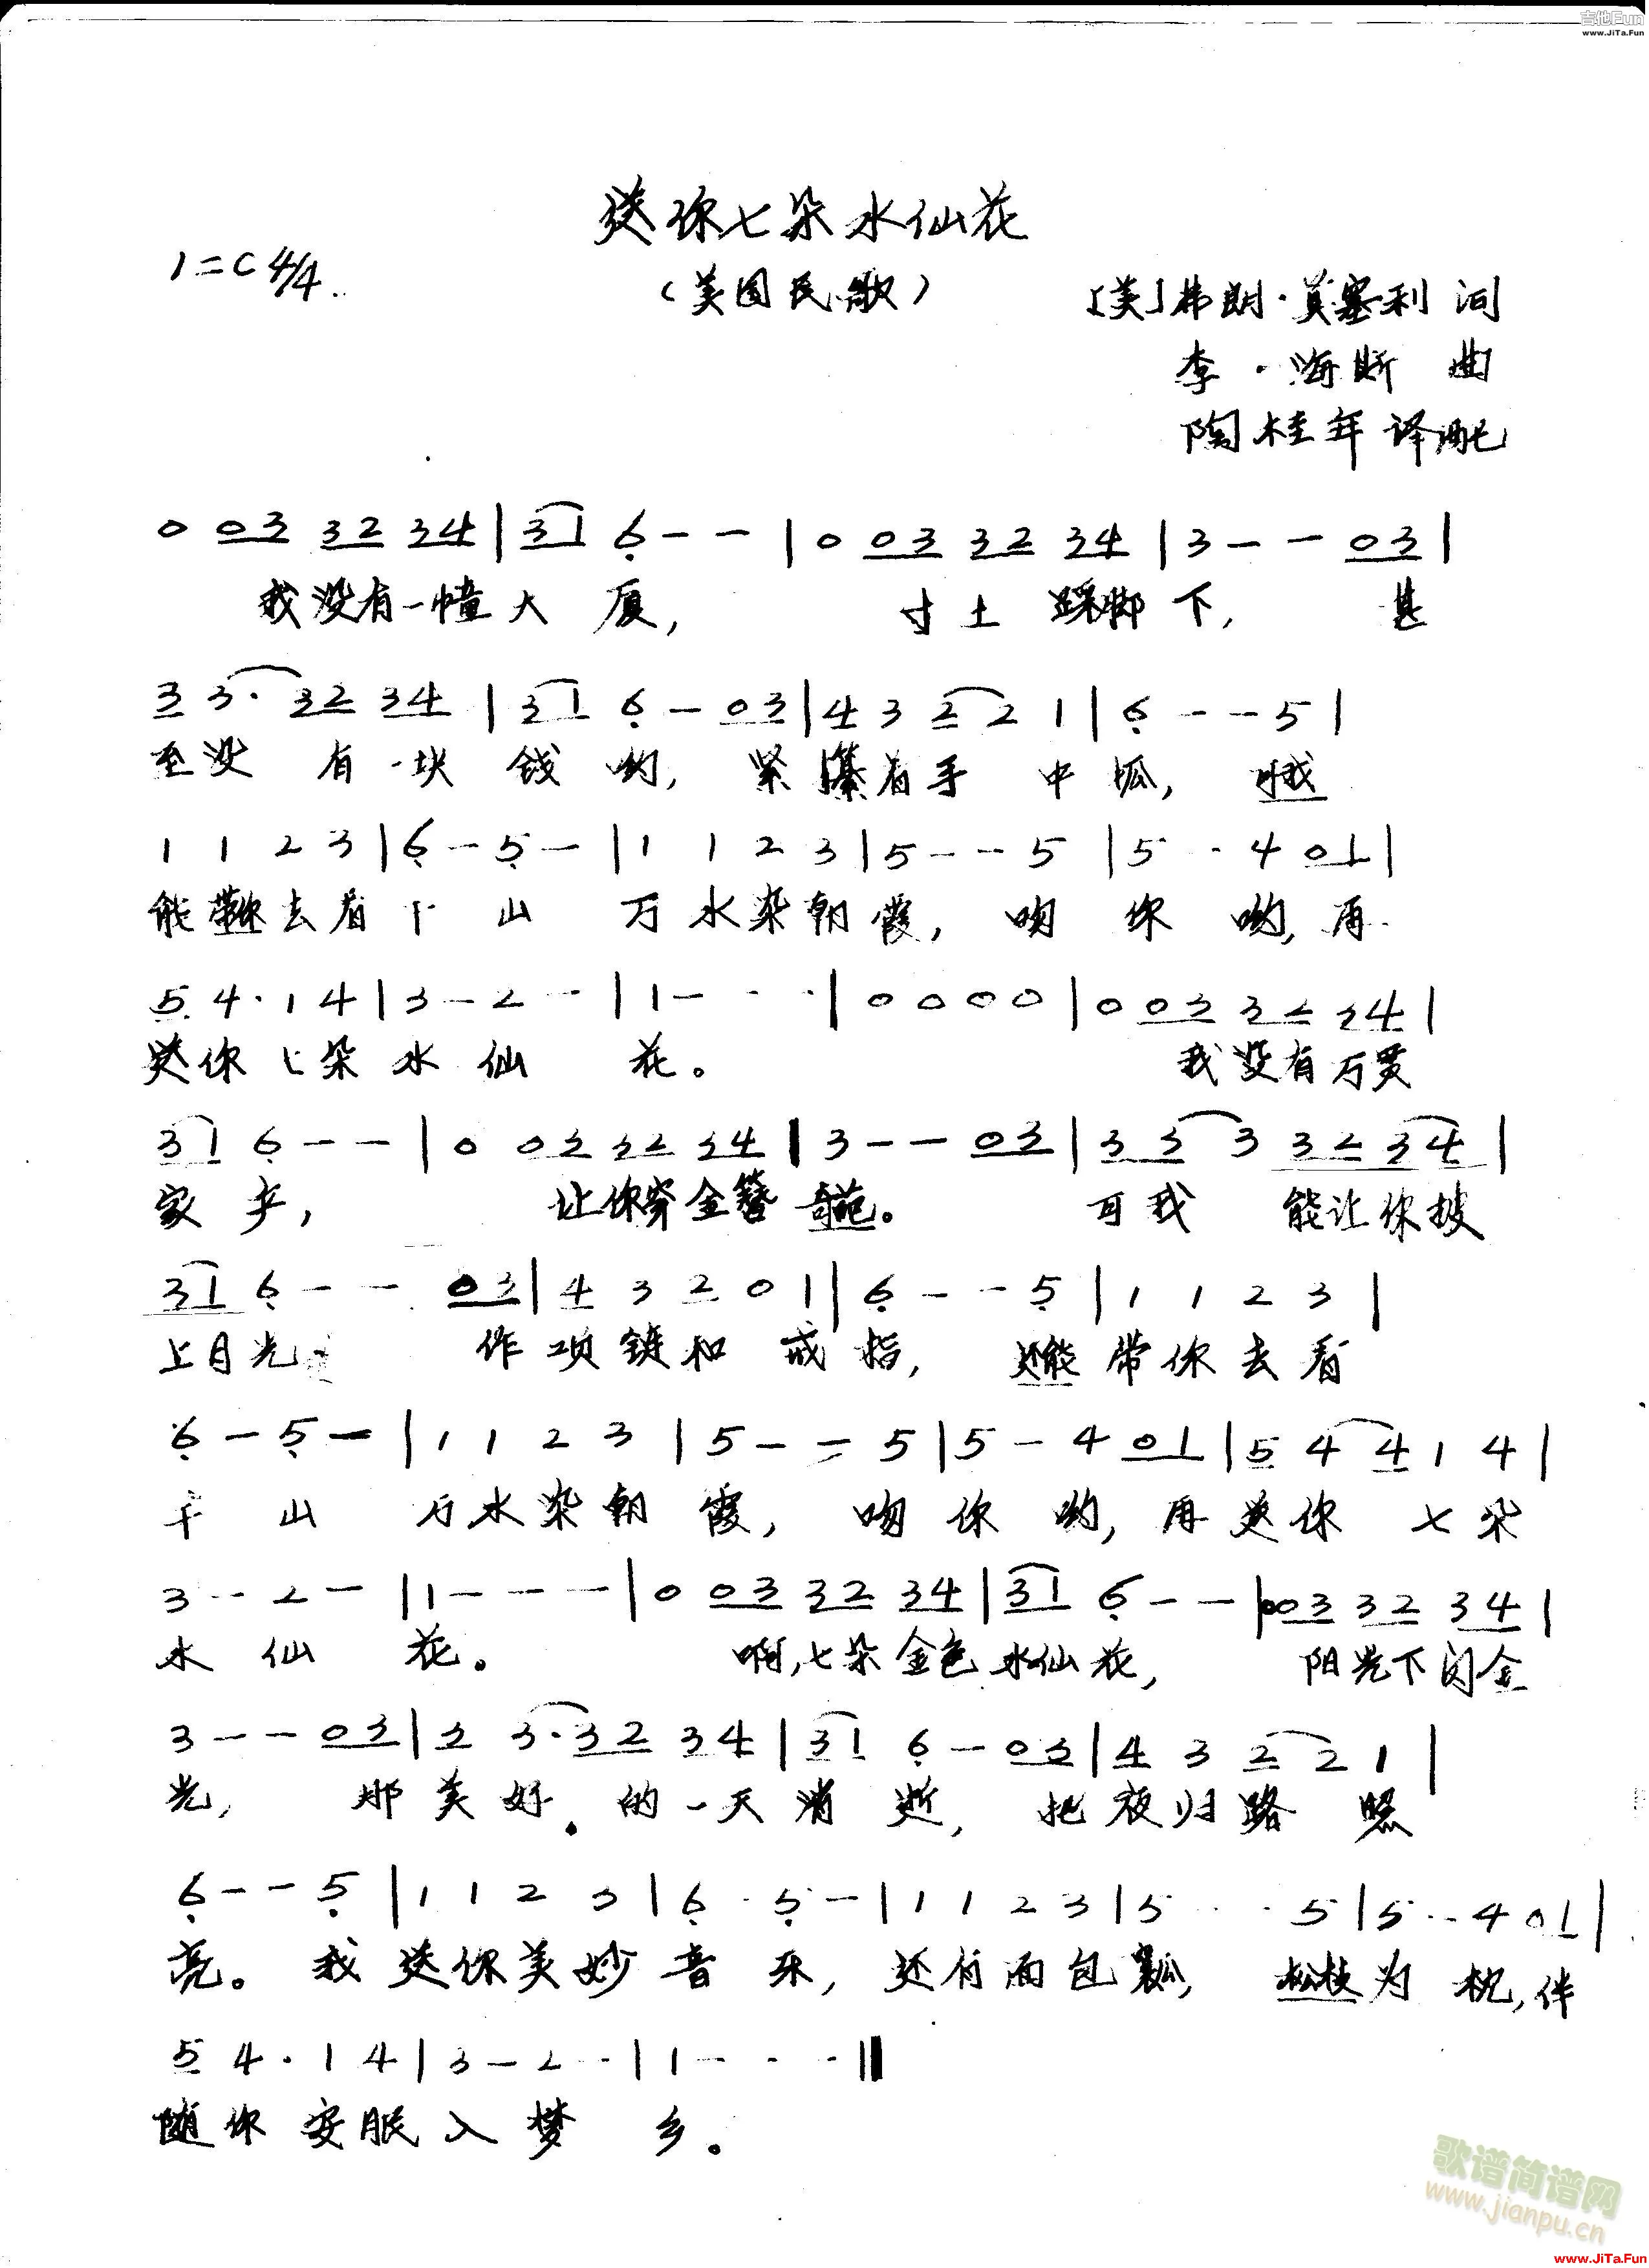 吉他Fun
www.JiTa.Fun
送你七朵水仙花
1=C 4/4
(美国民歌)
[美]弗朗·莫塞利 词
李·海斯 曲
陶桂年 译配
0 03 32 34 | 31 6 - - | 0 03 32 34 | 3 - - 03 |
我没有一幢大厦, 寸土踩脚下, 甚
3 3· 32 34 | 31 6 - 03 | 4 3 2 2 1 | 6 - - 5 |
至没有一块钱哟, 紧攥着手中抓, 可我
1 1 2 3 | 6 - 5 - | 1 1 2 3 | 5 - - 5 | 5 - - 4 01 |
能带你去看千山万水染朝霞, 吻你哟, 再
5 4· 1 4 | 3 - 2 - | 1 - - - | 0 0 0 0 | 0 03 32 34 |
送你七朵水仙花。 我没有万贯
31 6 - - | 0 03 32 34 | 3 - - 03 | 33 3 32 34 |
家产, 让你穿金簪奇葩。 可我能让你披
31 6 - - 03 | 4 3 2 0 1 | 6 - - 5 | 1 1 2 3 |
上月光 作项链和戒指, 还能带你去看
6 - 5 - | 1 1 2 3 | 5 - - 5 | 5 - 4 01 | 5 4 4 1 4 |
千山万水染朝霞, 吻你哟, 再送你七朵
3 - - 2 - | 1 - - - | 0 03 32 34 | 31 6 - - | 003 32 34 |
水仙花。 啊, 七朵金色水仙花, 阳光下闪金
3 - - 03 | 3 3· 32 34 | 31 6 - 03 | 4 3 2 2 1 |
光, 那美好的一天消逝, 把夜归路照
6 - - 5 | 1 1 2 3 | 6 · 5 - | 1 1 2 3 | 5 - - 5 | 5 - - 4 01 |
亮。我送你美妙音乐, 还有面包瓤, 松枝为枕, 伴
5 4· 1 4 | 3 - 2 - - | 1 - - - ||
随你安眠入梦乡。
歌谱简谱网
www.jianpu.cn
www.JiTa.Fun